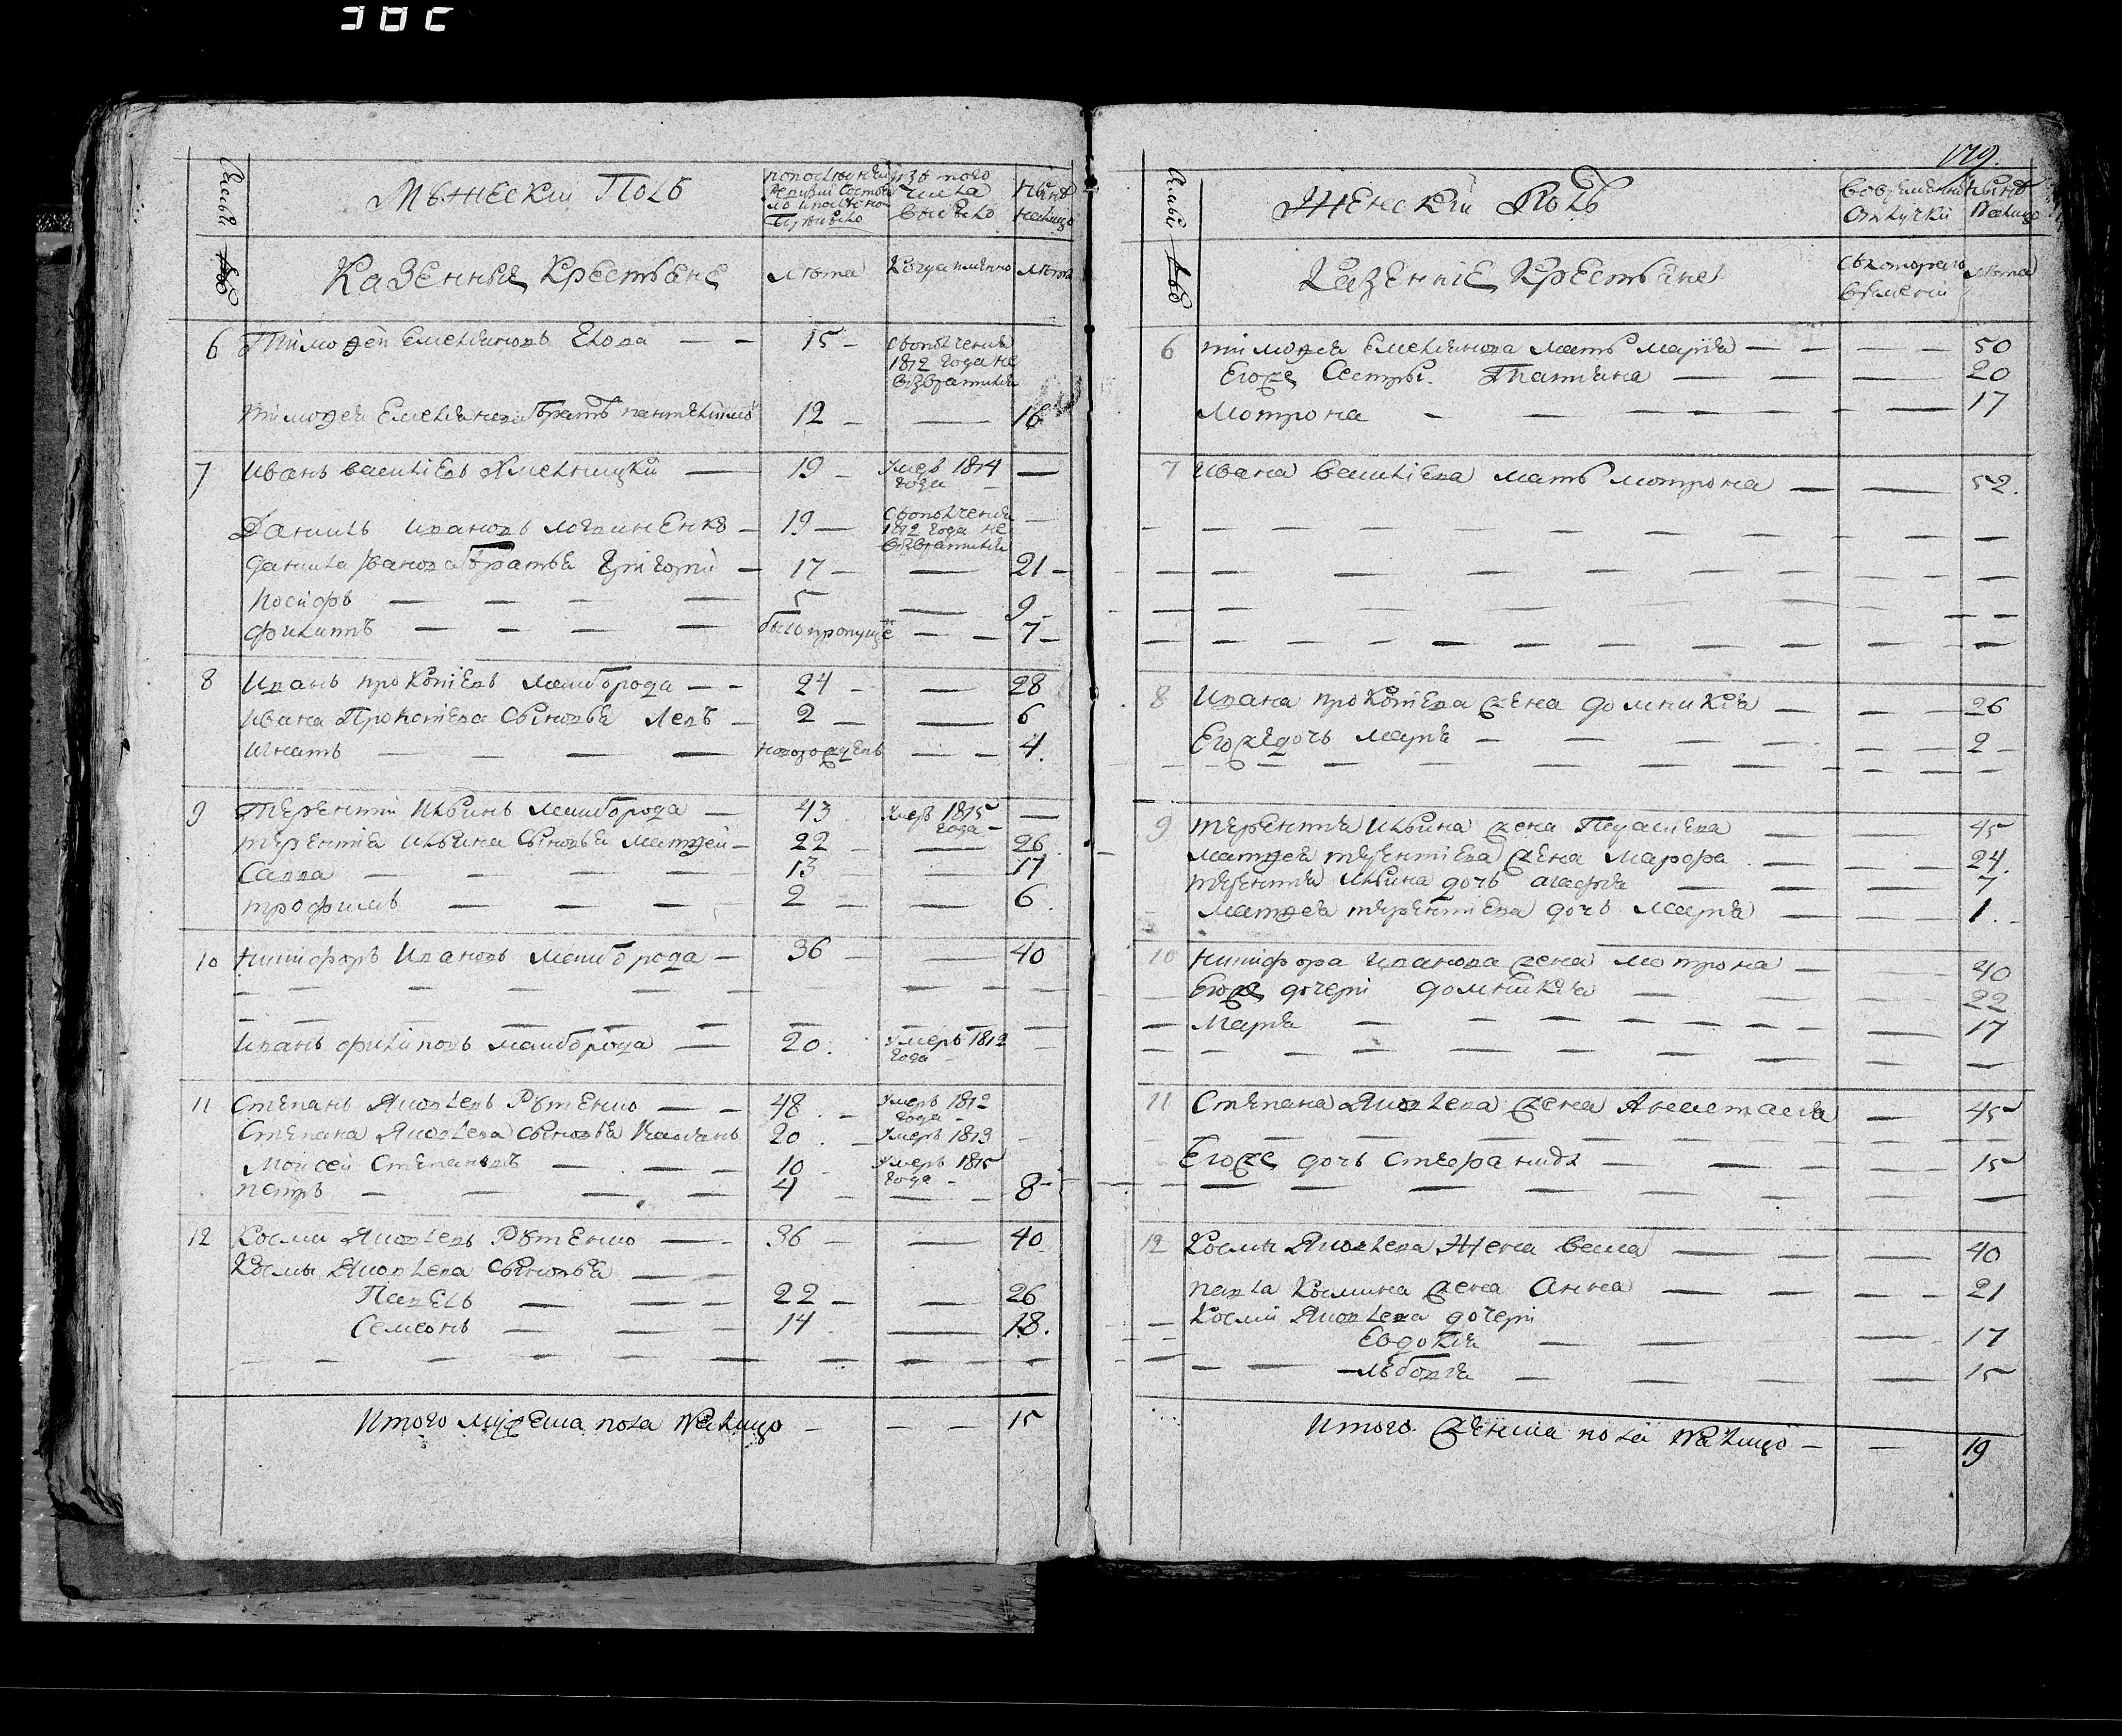 Мужеский Полъ
по последней ревизии состояло и после оной прибыло
изъ того числа выбыло
ныне налицо
Казенные Крестьяне
лета
когда именно
лета
6 Тимофей Емельяновъ Елова — — 15 —
с ополчения
1812 года не
возвратился
Тимофея Емельянова братъ Пантелимо 12 — — 16
7 Иванъ Васильевъ Хмельницкий — 19 — умеръ 1814 —
года —
Данилъ Ивановъ Логвиненко — 19 —
с ополчения
1812 года не
возвратился
Данила Иванова братья Григорий — 17 — — 21 —
Иосифъ — — — — 5 — 9 —
Филатъ — — — — былъ пропуще — — 7 —
8 Иванъ Прокопиевъ Маиборода — — 24 — — 28
Ивана Прокопиева сыновья Левъ — 2 — — 6
Игнатъ — — — новорожденъ — — 4.
9 Терентий Ильинъ Маиборода — 43 умеръ 1815 —
года —
Терентия Ильина сыновья Матфей — 22 — — 26
Савва — — — — 13 — — 17
Трофимъ — — — 2 — — 6.
10 Никифоръ Ивановъ Маиборода — 36 — — 40
Иванъ Филиповъ Маиборода — 20. умеръ 1812 —
года
11 Степанъ Яковлевъ Рутенко — — 48. — умеръ 1812
года —
Степана Яковлева сыновья Касьянъ 20. — умеръ 1813 —
Моисей Степановъ — — — 10 — умеръ 1815
года —
Петръ — — — — 4 — — — 8 —
12 Косма Яковлевъ Рутенко — — 36 — — 40
Космы Яковлева сыновья — —
Павелъ — — — 22 — — 26
Семенъ — — — 14 — 18.
Итого мужеска пола налицо — — — 15
179.
Женский Полъ
во временной отлучки
ныне налицо
Казенние Крестьяне
съ которого времени
лета
6 Тимофея Емельянова мать Мария — — — — 50
Егоже сестры. Татияна — — — 20
Мотрона — — — — — — 17
7 Ивана Васильева мать Мотрона — — 52.
8 Ивана Прокопиева жена Домникия — — — 26
Егоже дочь Марья — — — — — — 2 —
9 Терентия Ильина жена Пелагиева — — — 45
Матфея Терентиева жена Марфа — — — 24.
Терентия Ильина дочь Агафия — — — 7
Матфея Терентиева дочь Марья — — — 1. —
10 Никифора Иванова жена Мотрона — — — 40
Егоже дочери Домникия — — — — 22
Марья — — — — — — — — 17
11 Степана Яковлева жена Анастасия — 45
Егоже дочь Стефанида — — — — — 15
12 Космы Яковлева Жена Васса — — — — 40
Павла Космина жена Анна — — — — 21
Космы Яковлева дочери
Евдокия — — — 17
Любовя — — — — 15
Итого женска пола налицо — — 19